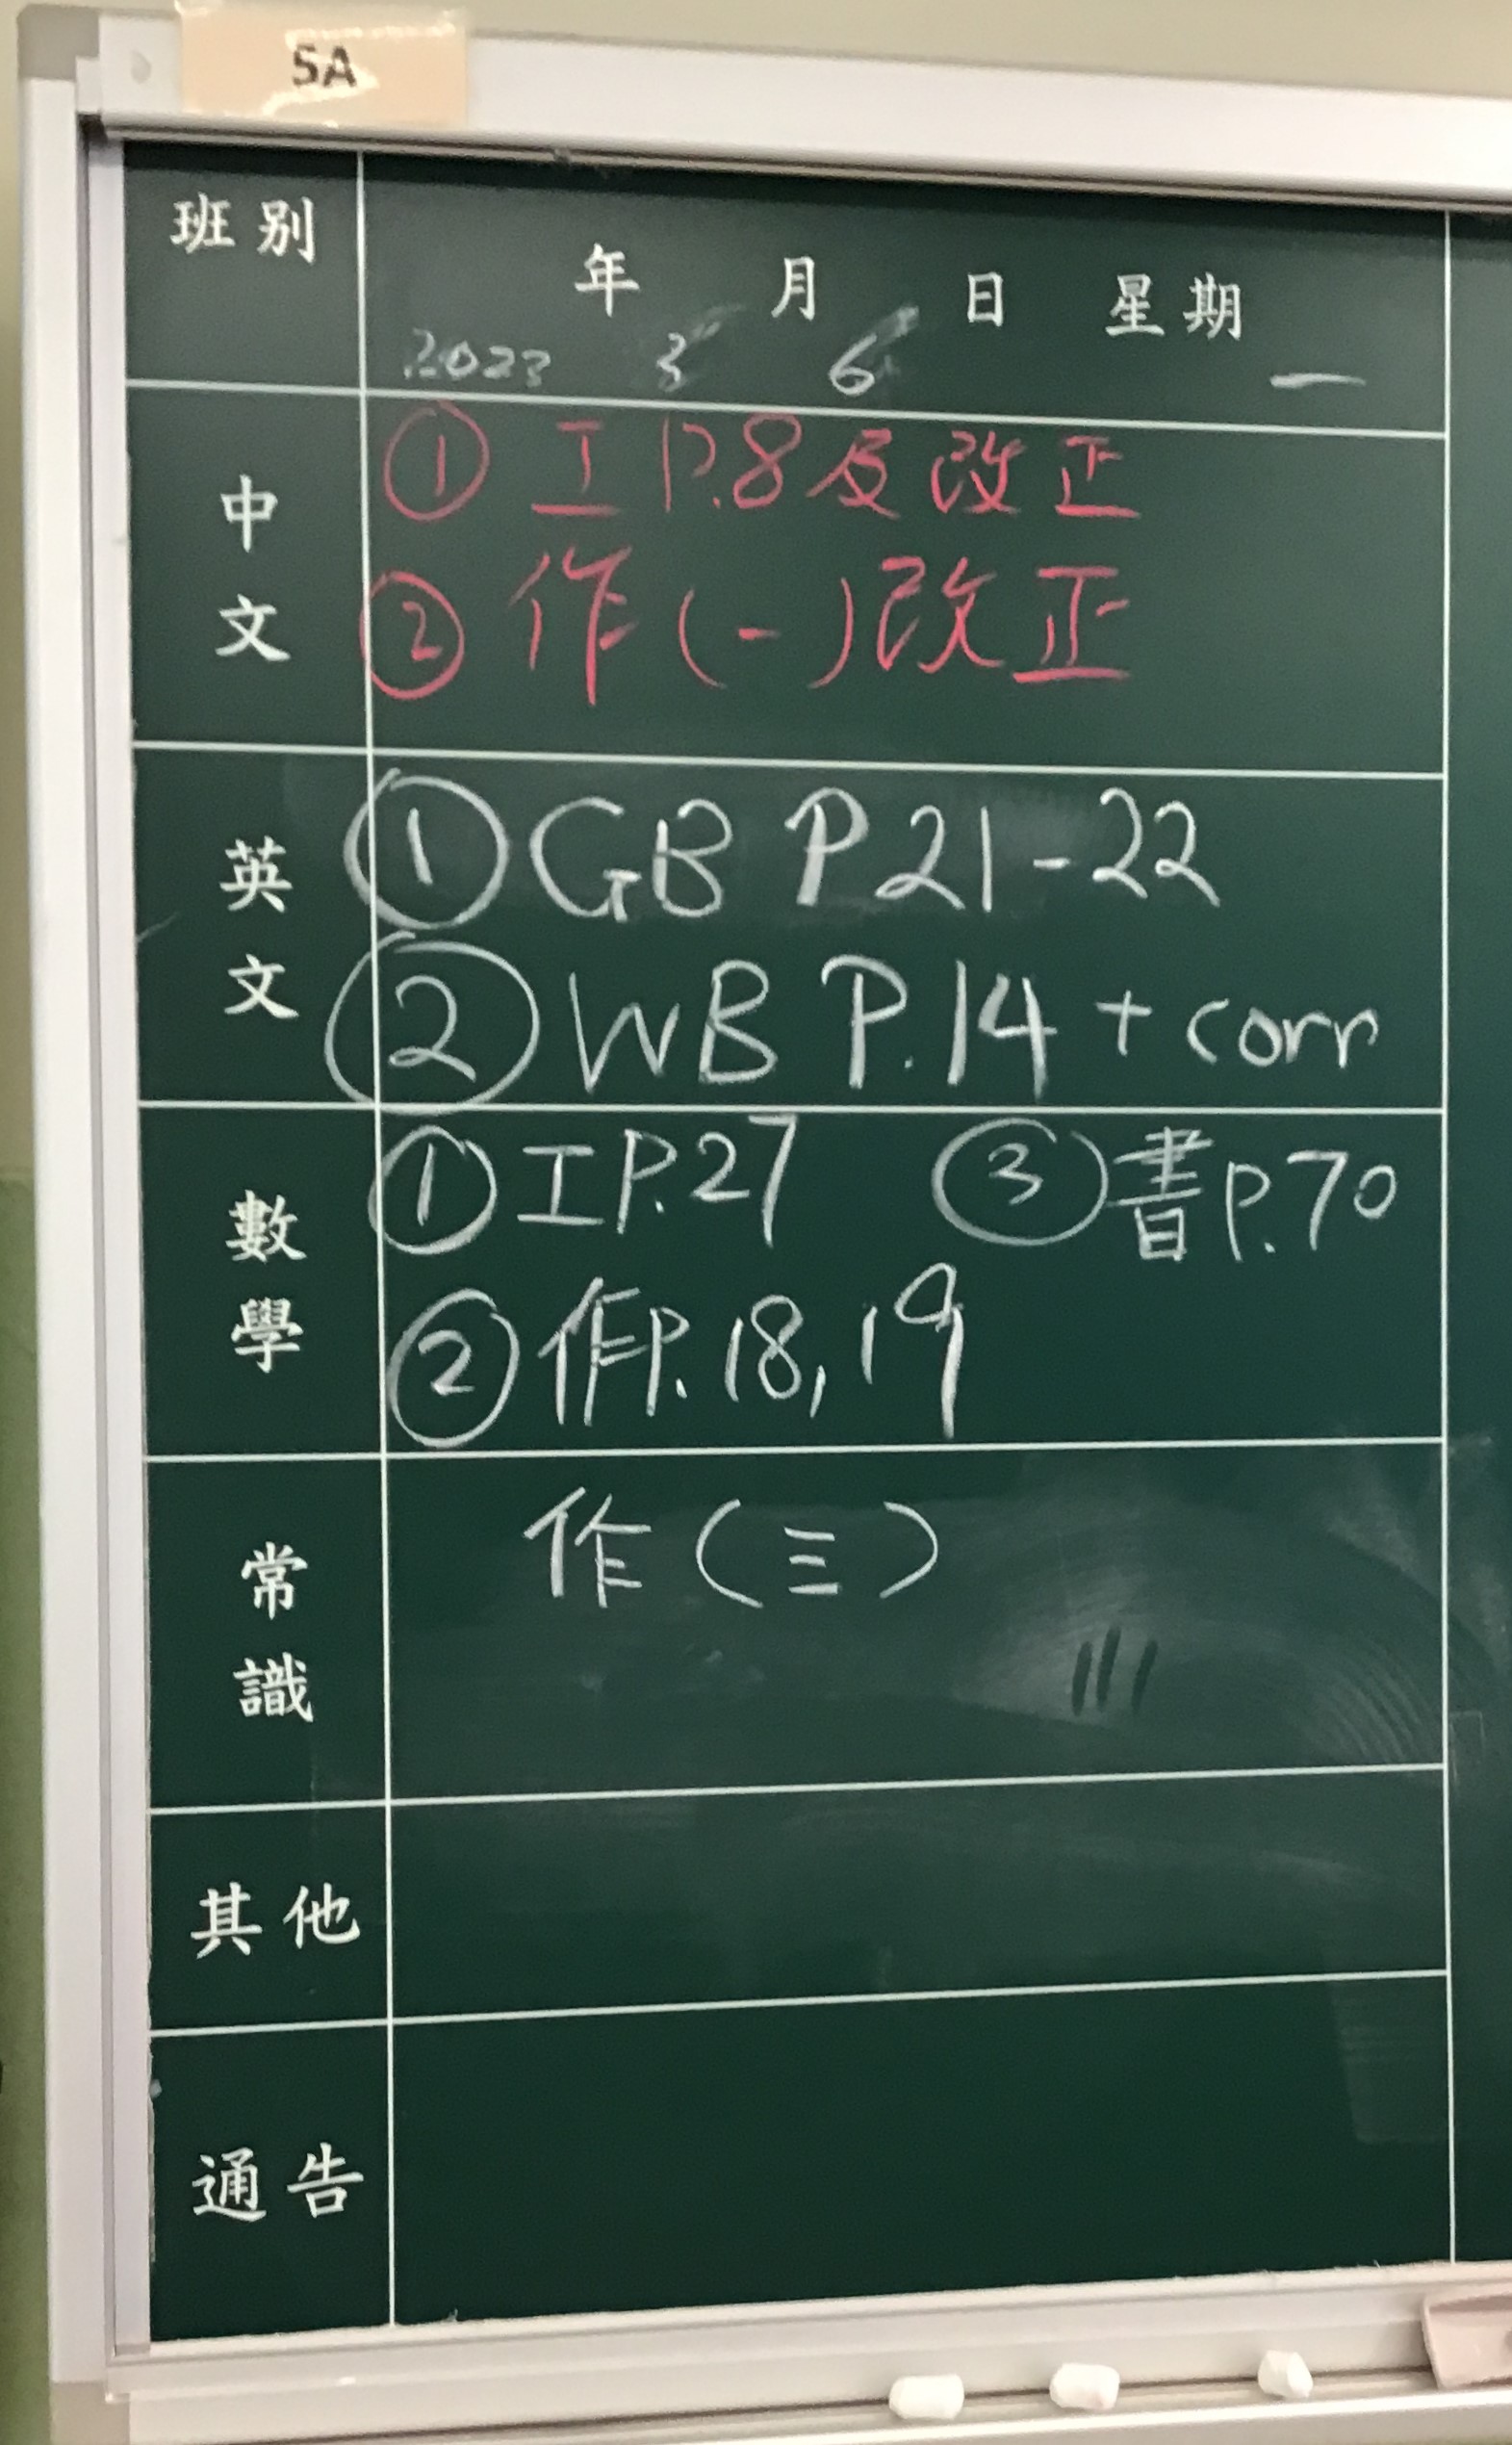 5A
班別
年 月 日 星期
2023 3 6 一
中文
① 工 P.8 及改正
② 作(一)改正
英文
① GB P 21-22
② WB P.14 + corr
數學
① 工P.27 ③ 書P.70
② 作P.18,19
常識
作(三)
其他
通告